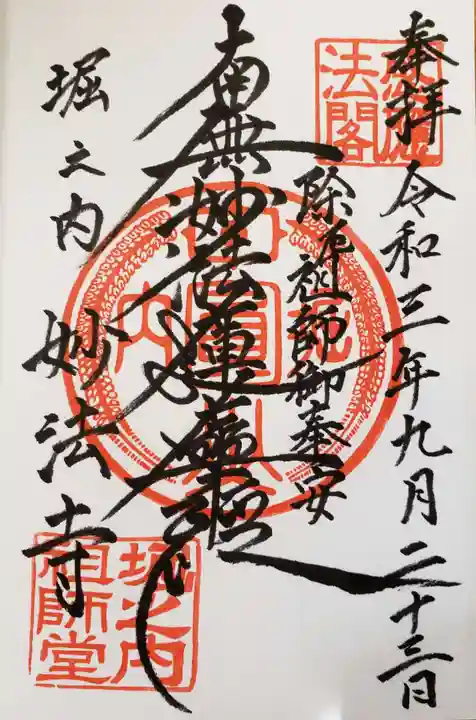 奉拝 令和三年九月二十三日
除厄祖師御奉安
南無妙法蓮華経
堀之内 妙法寺
法閣
堀之内
祖師堂